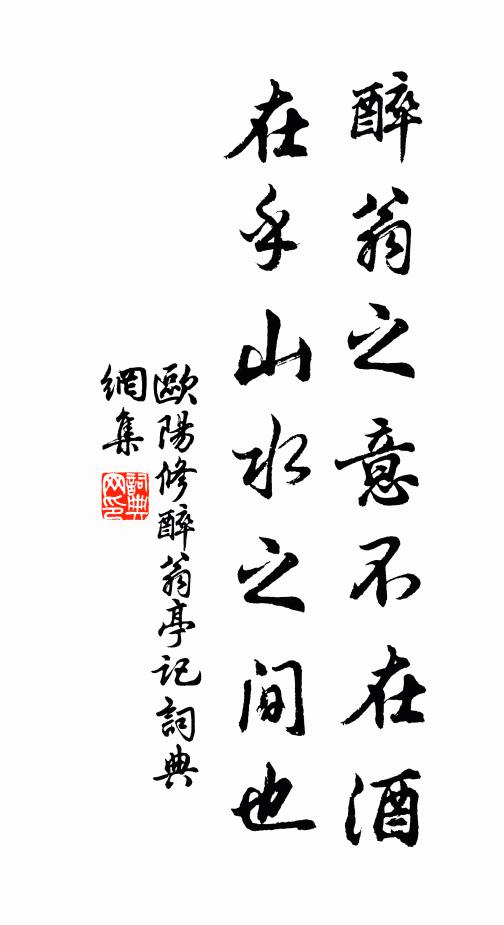 醉翁之意不在酒
在乎山水之间也
歐陽修醉翁亭记詞典
網集
詞典
网印